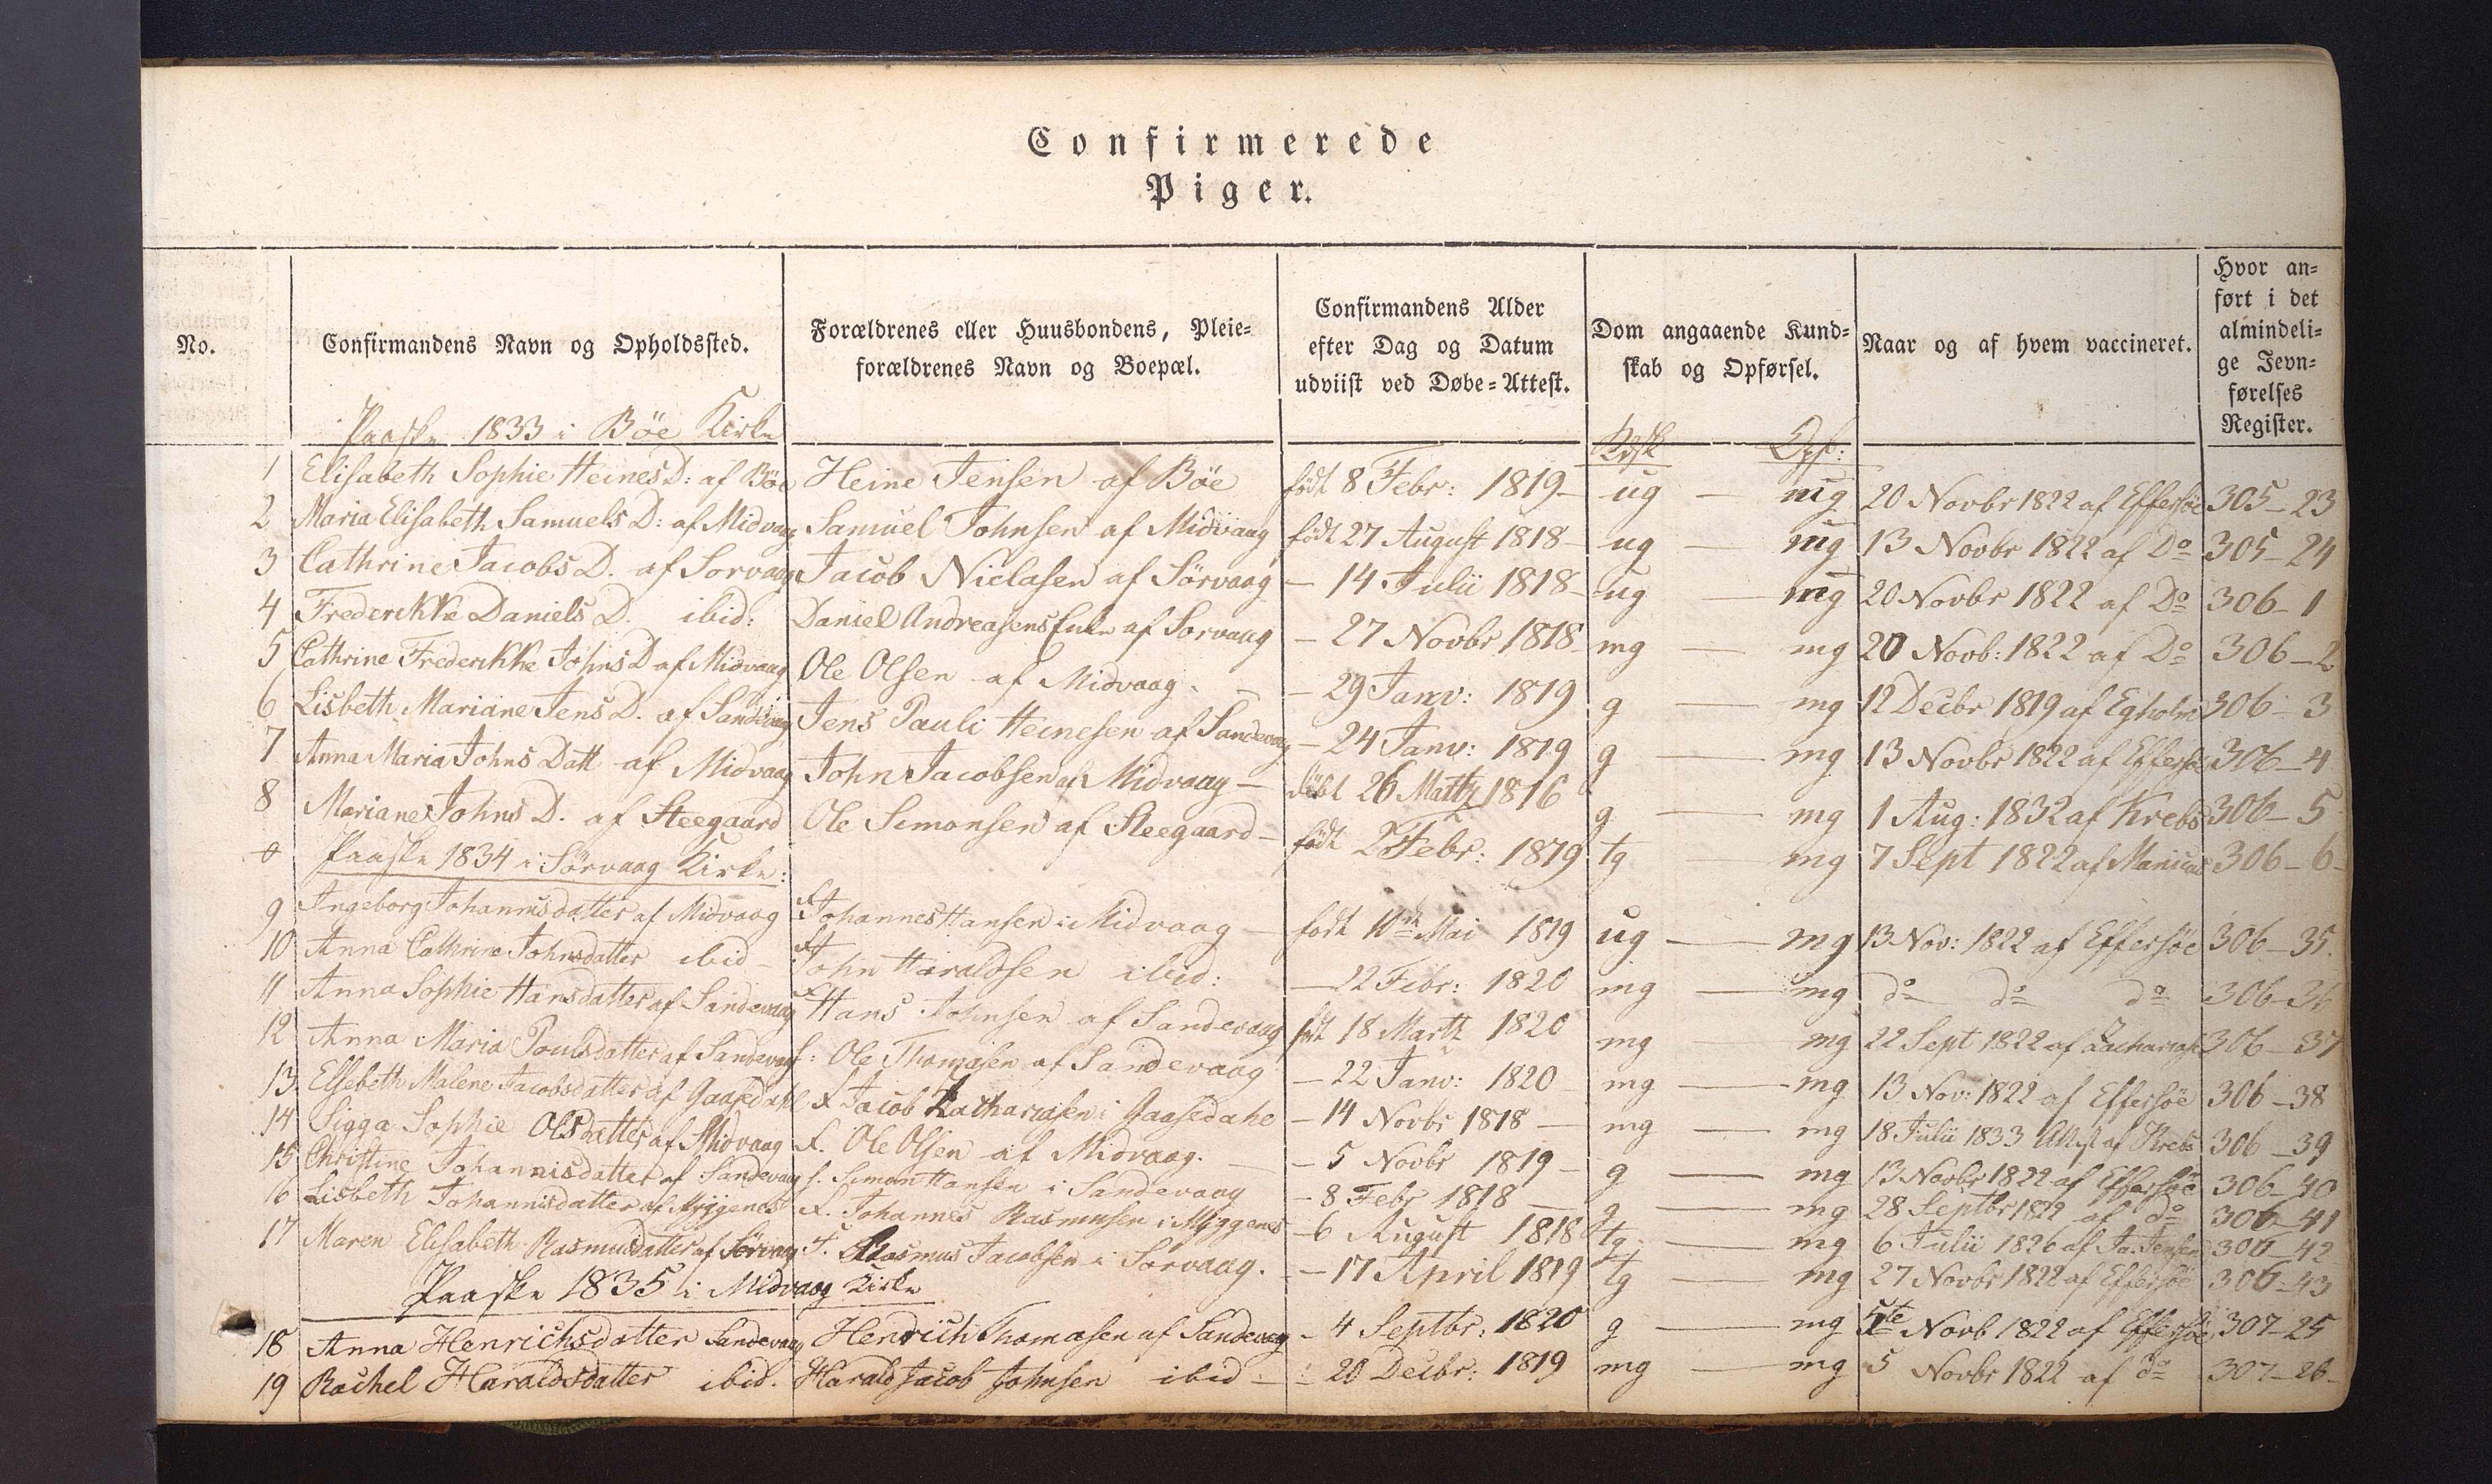 Confirmerede
Piger.
No. Confirmandens Navn og Opholdssted. Forældrenes eller Huusbondens, Pleie= forældrenes Navn og Boepæl. Confirmandens Alder efter Dag og Datum udviist ved Døbe=Attest. Dom angaaende Kund= skab og Opførsel. Naar og af hvem vaccineret. Hvor an= ført i det almindeli= ge Jevn= førelses Register.
Paaske 1833 i Böe Kirke Kdsk Opf:
1 Elisabeth Sophie Heines D: af Böe Heine Jensen af Böe födt 8 Febr: 1819 ug — mg 20 Novbr 1822 af Effersöe 305-23
2 Maria Elisabeth Samuels D: af Midvaag Samuel Johnsen af Midvaag födt 27 August 1818 ug — mg 13 Novbr 1822 af Do 305-24
3 Cathrine Jacobs D. af Sorvaag Jacob Niclasen af Sörvaag — 14 Julii 1818 ug — mg 20 Novbr 1822 af Do 306-1
4 Frederikke Daniels D. ibid: Daniel Andreasens Enke af Sorvaag — 27 Novbr 1818 mg — mg 20 Novb: 1822 af Do 306-2
5 Cathrine Frederikke Johns D af Midvaag Ole Olsen af Midvaag. — 29 Janv: 1819 g — mg 12 Decbr 1819 af Egholm 306-3
6 Lisbeth Mariane Jens D. af Sandevaag Jens Pauli Heinesen af Sandevaag — 24 Janv: 1819 g — mg 13 Novbr 1822 af Effersöe 306-4
7 Anna Maria Johns Datt af Midvaag John Jacobsen af Midvaag — döbt 26 Martz 1816 g — mg 1 Aug: 1832 af Krebs 306-5
8 Mariane Johns D. af Steegaard Ole Simonsen af Steegaard — födt 2 Febr: 1819 tg mg 7 Sept 1822 af 306-6
Paaske 1834 i Sörvaag Kirke:
9 Ingeborg Johannisdatter af Midvaag Johannes Hansen i Midvaag — födt 10de Mai 1819 ug — mg 13 Nov: 1822 af Effersöe 306-35.
10 Anna Cathrine Johnsdatter ibid — John Haraldsen ibid: — 22 Febr: 1820 mg — mg do do do 306-36
11 Anna Sophie Hansdatter af Sandevaag Hans Johnsen af Sandevaag födt 18 Martz 1820 mg — mg 22 Sept 1822 af 306-37
12 Anna Maria Poulsdatter af Sandevaag f: Ole Thomasen af Sandevaag — 22 Janv: 1820 mg — mg 13 Nov: 1822 af Effersöe 306-38
13 Elsebeth Malene Jacobsdatter af Gaasedahl f Jacob Zachariasen i Gaasedahl — 14 Novbr 1818 — mg — mg 18 Julii 1833 Attest af Krebs 306-39
14 Sigga Sophie Olsdatter af Midvaag f. Ole Olsen af Midvaag. — 5 Novbr 1819 — g — mg 13 Novbr 1822 af Effersöe 306-40
15 Christine Johannisdatter af Sandevaag f. Simon Hansen i Sandevaag — 8 Febr 1818 — g — mg 28 Septbr 1822 af do 306-41
16 Lisbeth Johannisdatter af Myggenes f. Johannes Rasmusen i Myggenes — 6 August 1818 tg — mg 6 Julii 1826 af Ja. Jensen 306-42
17 Maren Elisabeth Rasmusdatter af Sörvaag f. Rasmus Jacobsen i Sorvaag. — 17 April 1819 tg — mg 27 Novbr 1822 af Effersöe 306-43
Paaske 1835 i Midvaag Kirke
18 Anna Henrichsdatter Sandevaag Hendrich Thomasen af Sandevaag — 4 Septbr: 1820 g — mg 5te Novb 1822 af Effersöe 307-25
19 Rachel Haraldsdatter ibid. Harald Jacob Johnsen ibid — 20 Decbr: 1819 mg — mg 5 Novbr 1822 af do 307-26-